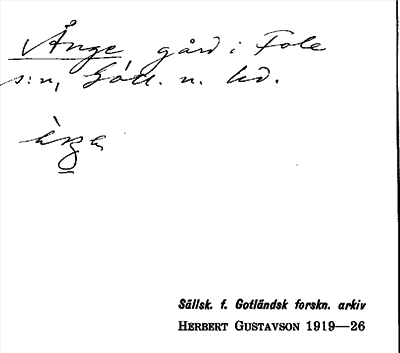 Ånge, gård i Fole
s:n, Gotl. n. hd.
Sällsk. f. Gotländsk forskn. arkiv
HERBERT GUSTAVSON 1919—26